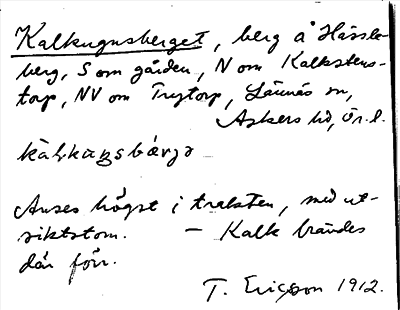 Kalkugnsberget, berg å Hässle-
berg, S om gården, N om Kalkstens-
torp, NV om Trytorp, Lännäs sn,
Askers hd, Ör. l.
Anses högst i trakten, med ut-
siktstorn. – Kalk brändes
där förr.
T. Ericsson 1912.